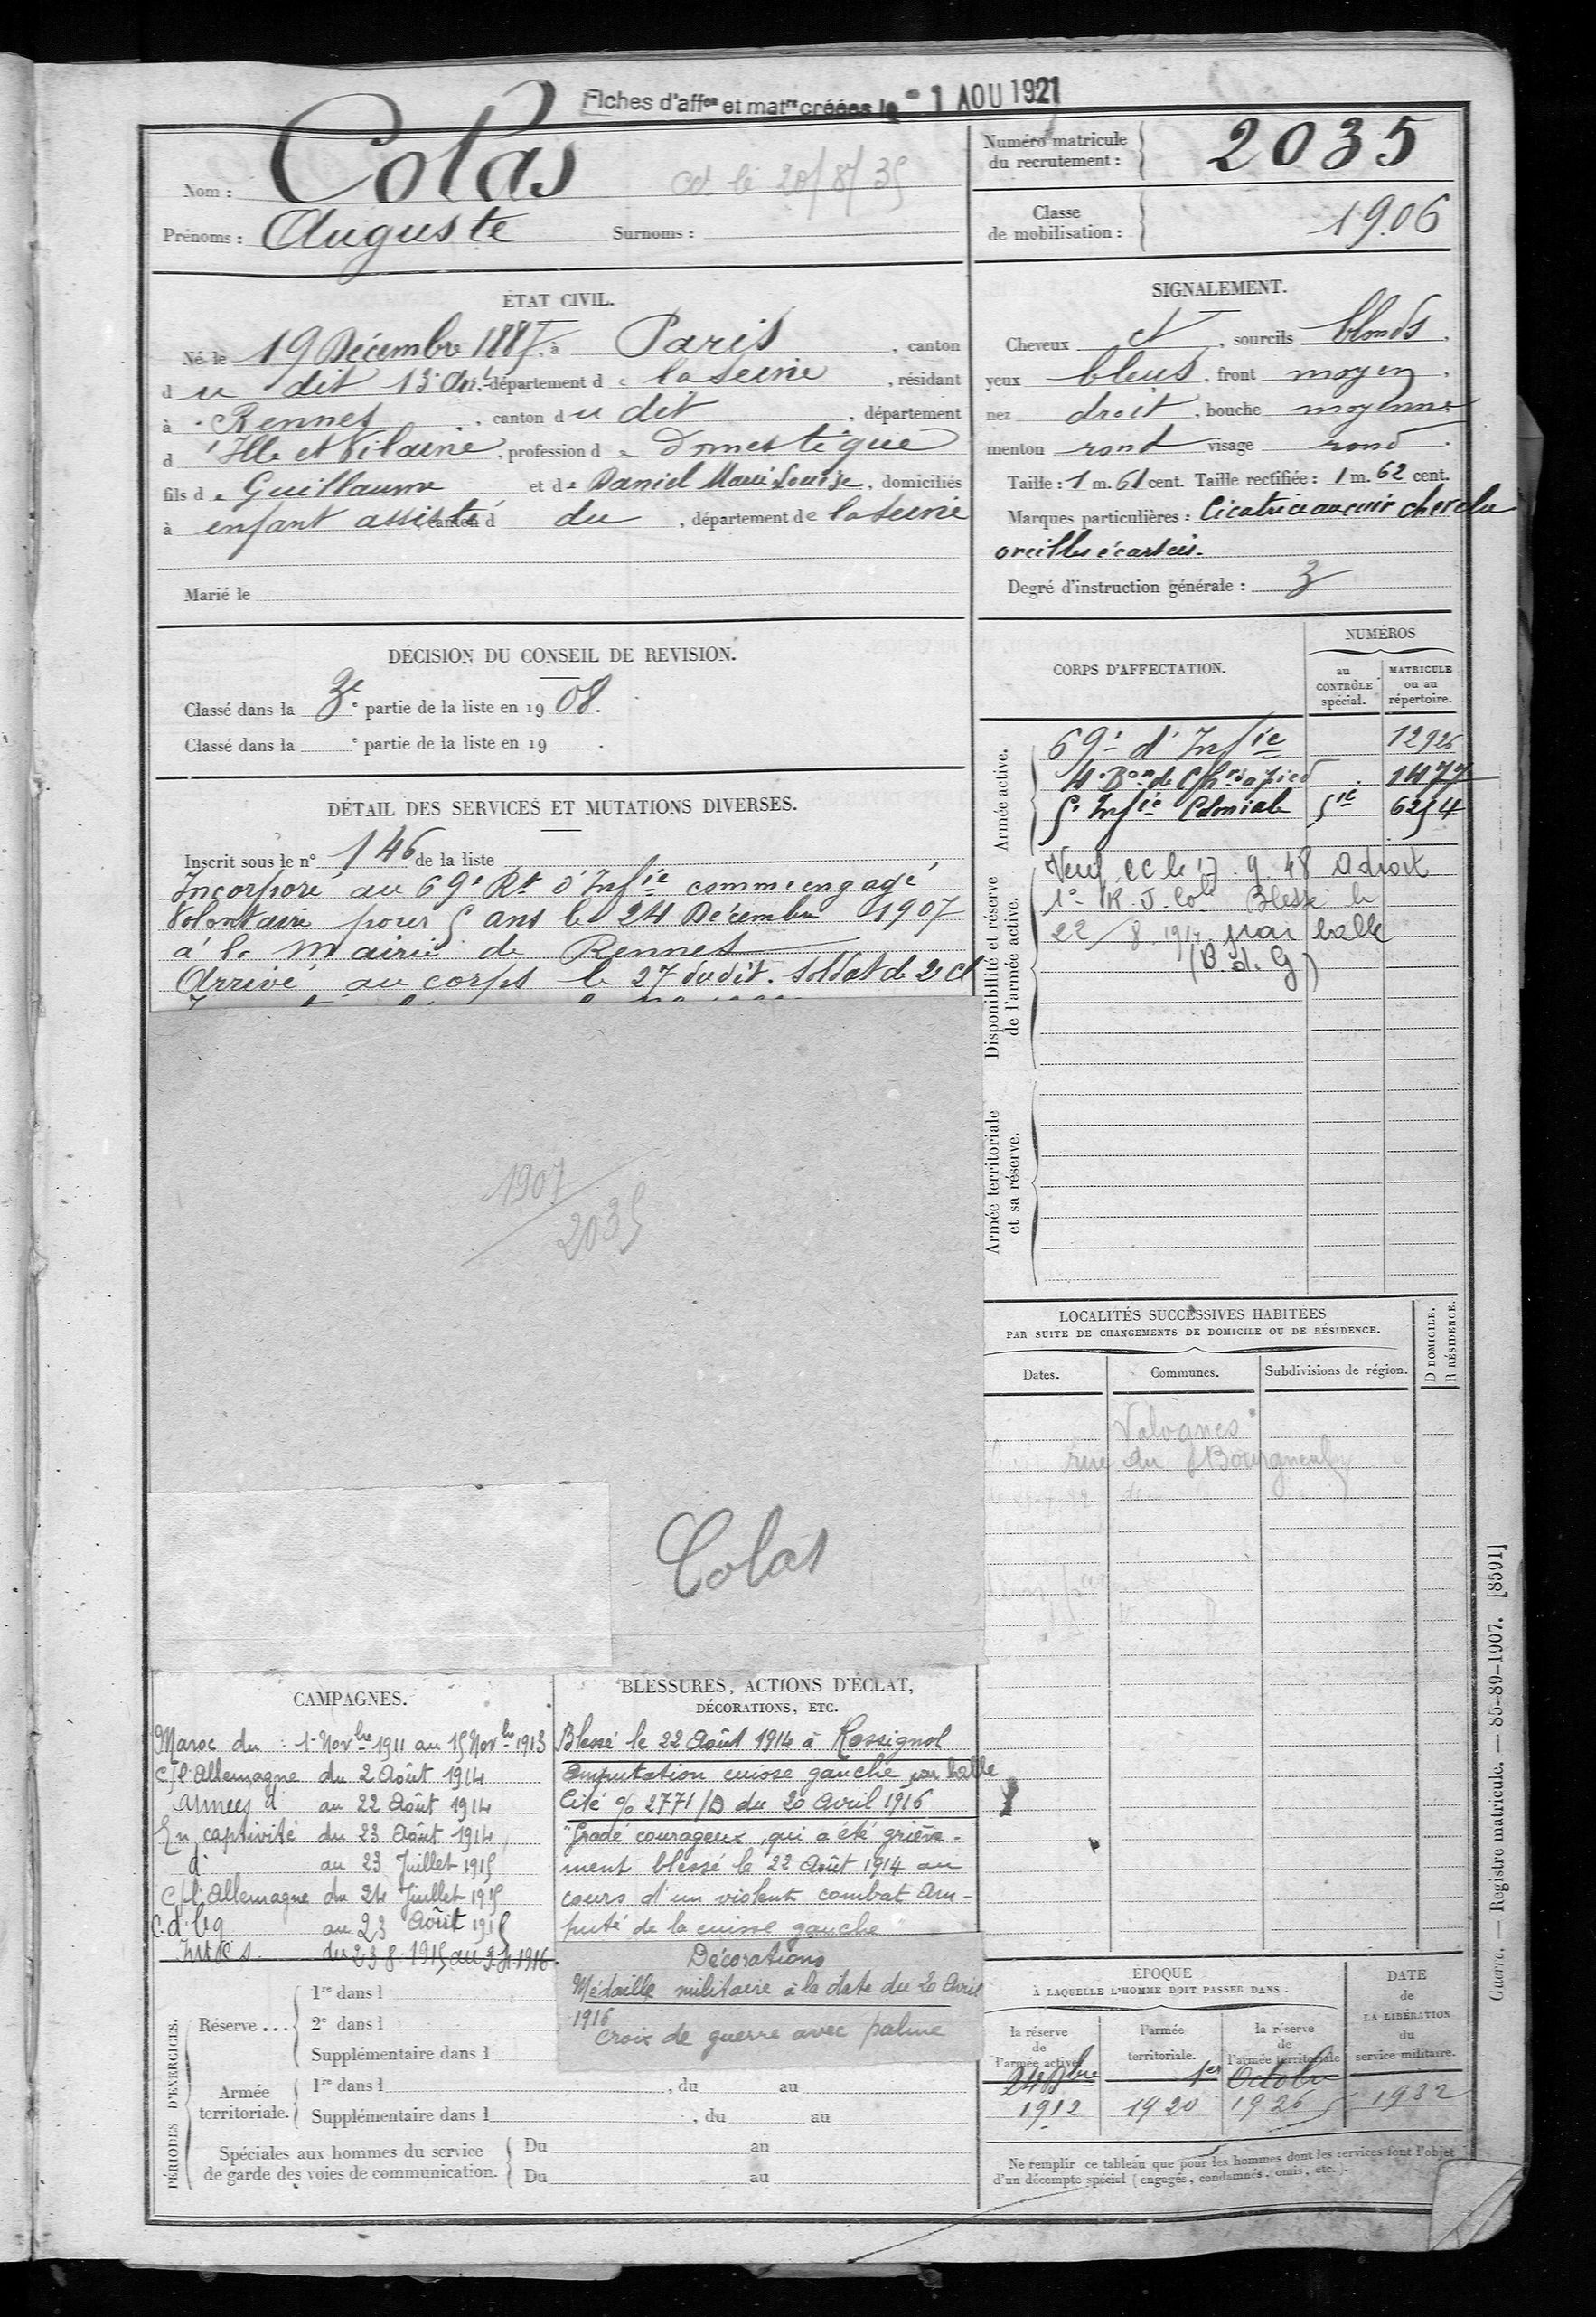 Fiches d'aff^on et mat^re créées le 1 AOU 1921
Nom : Colas
cd le 20/8/35
Prénoms : Auguste Surnoms :
Numéro matricule du recrutement : 2035
Classe de mobilisation : 1906
ÉTAT CIVIL.
Né le 19 Décembre 1887, à Paris, canton
du dit 13e Arr.t département de la Seine, résidant
à Rennes, canton du dit, département
d'Ille et Vilaine, profession de Domestique
fils de Guillaume et de Daniel Marie Louise, domiciliés
à enfant assisté canton d du, département de la Seine
Marié le
SIGNALEMENT.
Cheveux et, sourcils blonds,
yeux bleus, front moyen,
nez droit, bouche moyenne
menton rond visage rond.
Taille : 1 m. 61 cent. Taille rectifiée : 1 m. 62 cent.
Marques particulières : Cicatrice au cuir chevelu
oreilles écartées.
Degré d'instruction générale : 3
DÉCISION DU CONSEIL DE REVISION.
Classé dans la 3e partie de la liste en 1908.
Classé dans la e partie de la liste en 19 .
DÉTAIL DES SERVICES ET MUTATIONS DIVERSES.
Inscrit sous le n° 146 de la liste
Incorporé au 69e Rt d'Infie comme engagé
Volontaire pour 5 ans le 24 Décembre 1907
à la Mairie de Rennes
Arrivé au corps le 27 dudit. Soldat de 2e cl
1907
2035
Colas
CORPS D'AFFECTATION.
NUMÉROS
au CONTRÔLE spécial.
MATRICULE ou au répertoire.
Armée active.
69e d'Infie 12926
4e Bon de Chrs à pied 1477
5e Infie Coloniale 5ie 6254
Disponibilité et réserve de l'armée active.
Verif cc le 17.9.48 a droit
1° R. I. Col Blessé le
22/8.1914 par balle
(B. d. G)
Armée territoriale et sa réserve.
LOCALITÉS SUCCESSIVES HABITÉES
PAR SUITE DE CHANGEMENTS DE DOMICILE OU DE RÉSIDENCE.
Dates. Communes. Subdivisions de région. D DOMICILE. R RÉSIDENCE.
Valognes
rue du Bourgneuf
CAMPAGNES.
Maroc du : 1 Novbre 1911 au 15 Novbre 1913
C/l'Allemagne du 2 Août 1914
armées d° au 22 Août 1914
En captivité du 23 Août 1914
d° au 23 Juillet 1915
C/l'Allemagne du 24 Juillet 1915
au 23 Août 1915
Intes du 23.8.1915 au
BLESSURES, ACTIONS D'ÉCLAT,
DÉCORATIONS, ETC.
Blessé le 22 Août 1914 à Rossignol
Amputation cuisse gauche par balle
Cité % 2771/D du 20 Avril 1916
"Gradé courageux, qui a été griève-
ment blessé le 22 Août 1914 au
cours d'un violent combat Am-
puté de la cuisse gauche
Décorations
Médaille militaire à la date du 20 Avril
1916
Croix de guerre avec palme
PÉRIODES D'EXERCICES.
Réserve...
1re dans l
2e dans l
Supplémentaire dans l
Armée territoriale.
1re dans l , du au
Supplémentaire dans l , du au
Spéciales aux hommes du service de garde des voies de communication.
Du au
Du au
ÉPOQUE
À LAQUELLE L'HOMME DOIT PASSER DANS :
la réserve de l'armée active
l'armée territoriale.
la réserve de l'armée territoriale
DATE de LA LIBÉRATION du service militaire.
24 Dbre 1er Octobre
1912 1920 1926 1932
Ne remplir ce tableau que pour les hommes dont les services font l'objet
d'un décompte spécial (engagés, condamnés, omis, etc.).
Guerre. — Registre matricule. — 85-89-1907. [8591]